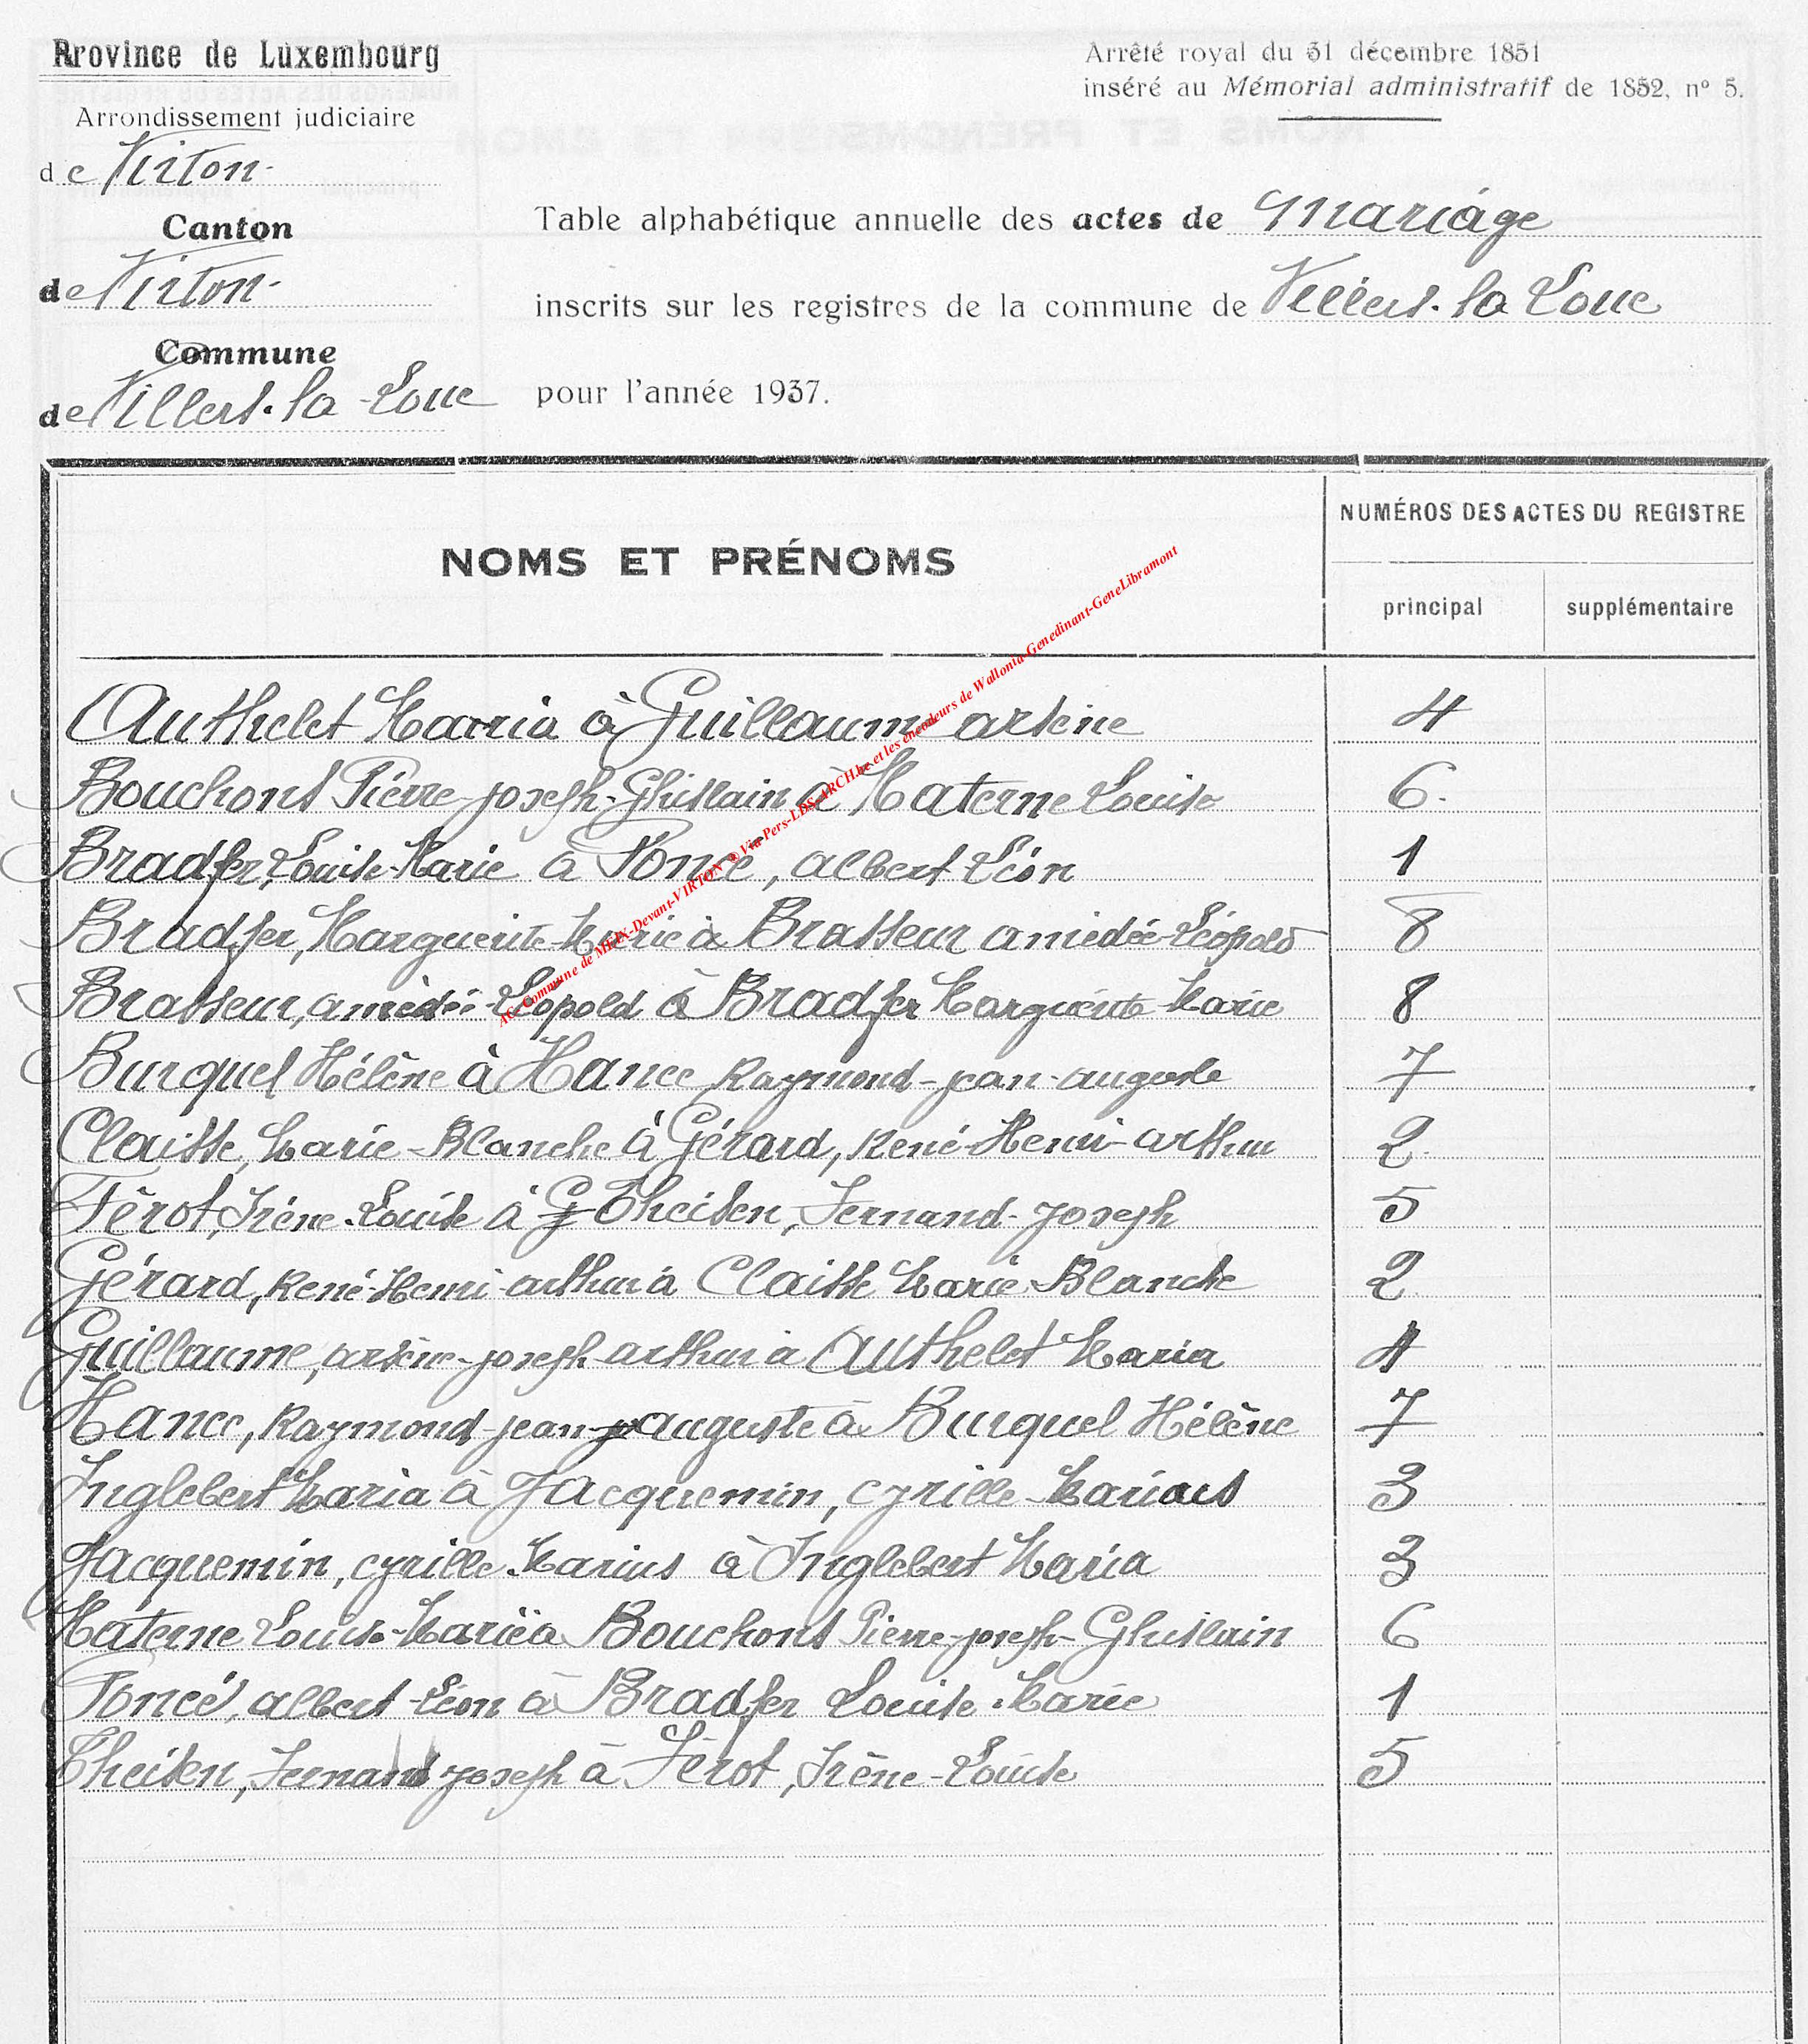 Province de Luxembourg
Arrondissement judiciaire
de Virton
Canton
de Virton
Commune
de Villers-la-Loue
Arrêté royal du 31 décembre 1851
inséré au Mémorial administratif de 1852, nº 5.
Table alphabétique annuelle des actes de Mariage
inscrits sur les registres de la commune de Villers-la Loue
pour l'année 1937.
NOMS ET PRÉNOMS
NUMÉROS DES ACTES DU REGISTRE
principal supplémentaire
Authelet Maria à Guillaume arsène 4
Bouchons Pierre-joseph-Ghislain à Materne Louise 6.
Bradfer, Louise-Marie à Poncé, albert Léon 1
Bradfer, Marguerite-Marie à Brasseur amédée-Léopold 8
Brasseur, amédée-Léopold à Bradfer Marguerite-Marie 8
Burquel Hélène à Hance Raymond-jean-auguste 7
Claisse, Marie-Blanche à Gérard, René-Henri-arthur 2
Férot, Irène-Louise à G Theisen, Fernand-Joseph 5
Gérard, René-Henri-arthur à Claisse Marie Blanche 2
Guillaume, arsène-joseph-arthur à Authelet Maria 4
Hance, Raymond-jean-auguste à Burquel Hélène 7
Inglebert Maria à Jacquemin, cyrille-Marius 3
Jacquemin, cyrille-Marius à Inglebert Maria 3
Materne Louise-Marie à Bouchons Pierre-joseph-Ghislain 6
Poncé, albert-Léon à Bradfer Louise-Marie 1
Theisen, Fernand joseph à Férot, Irène-Louise 5
AC-Commune de MEIX-Devant-VIRTON © Via Pers-LDS-ARCH.be et les encodeurs de Wallonia-Genedinant-GeneLibramont